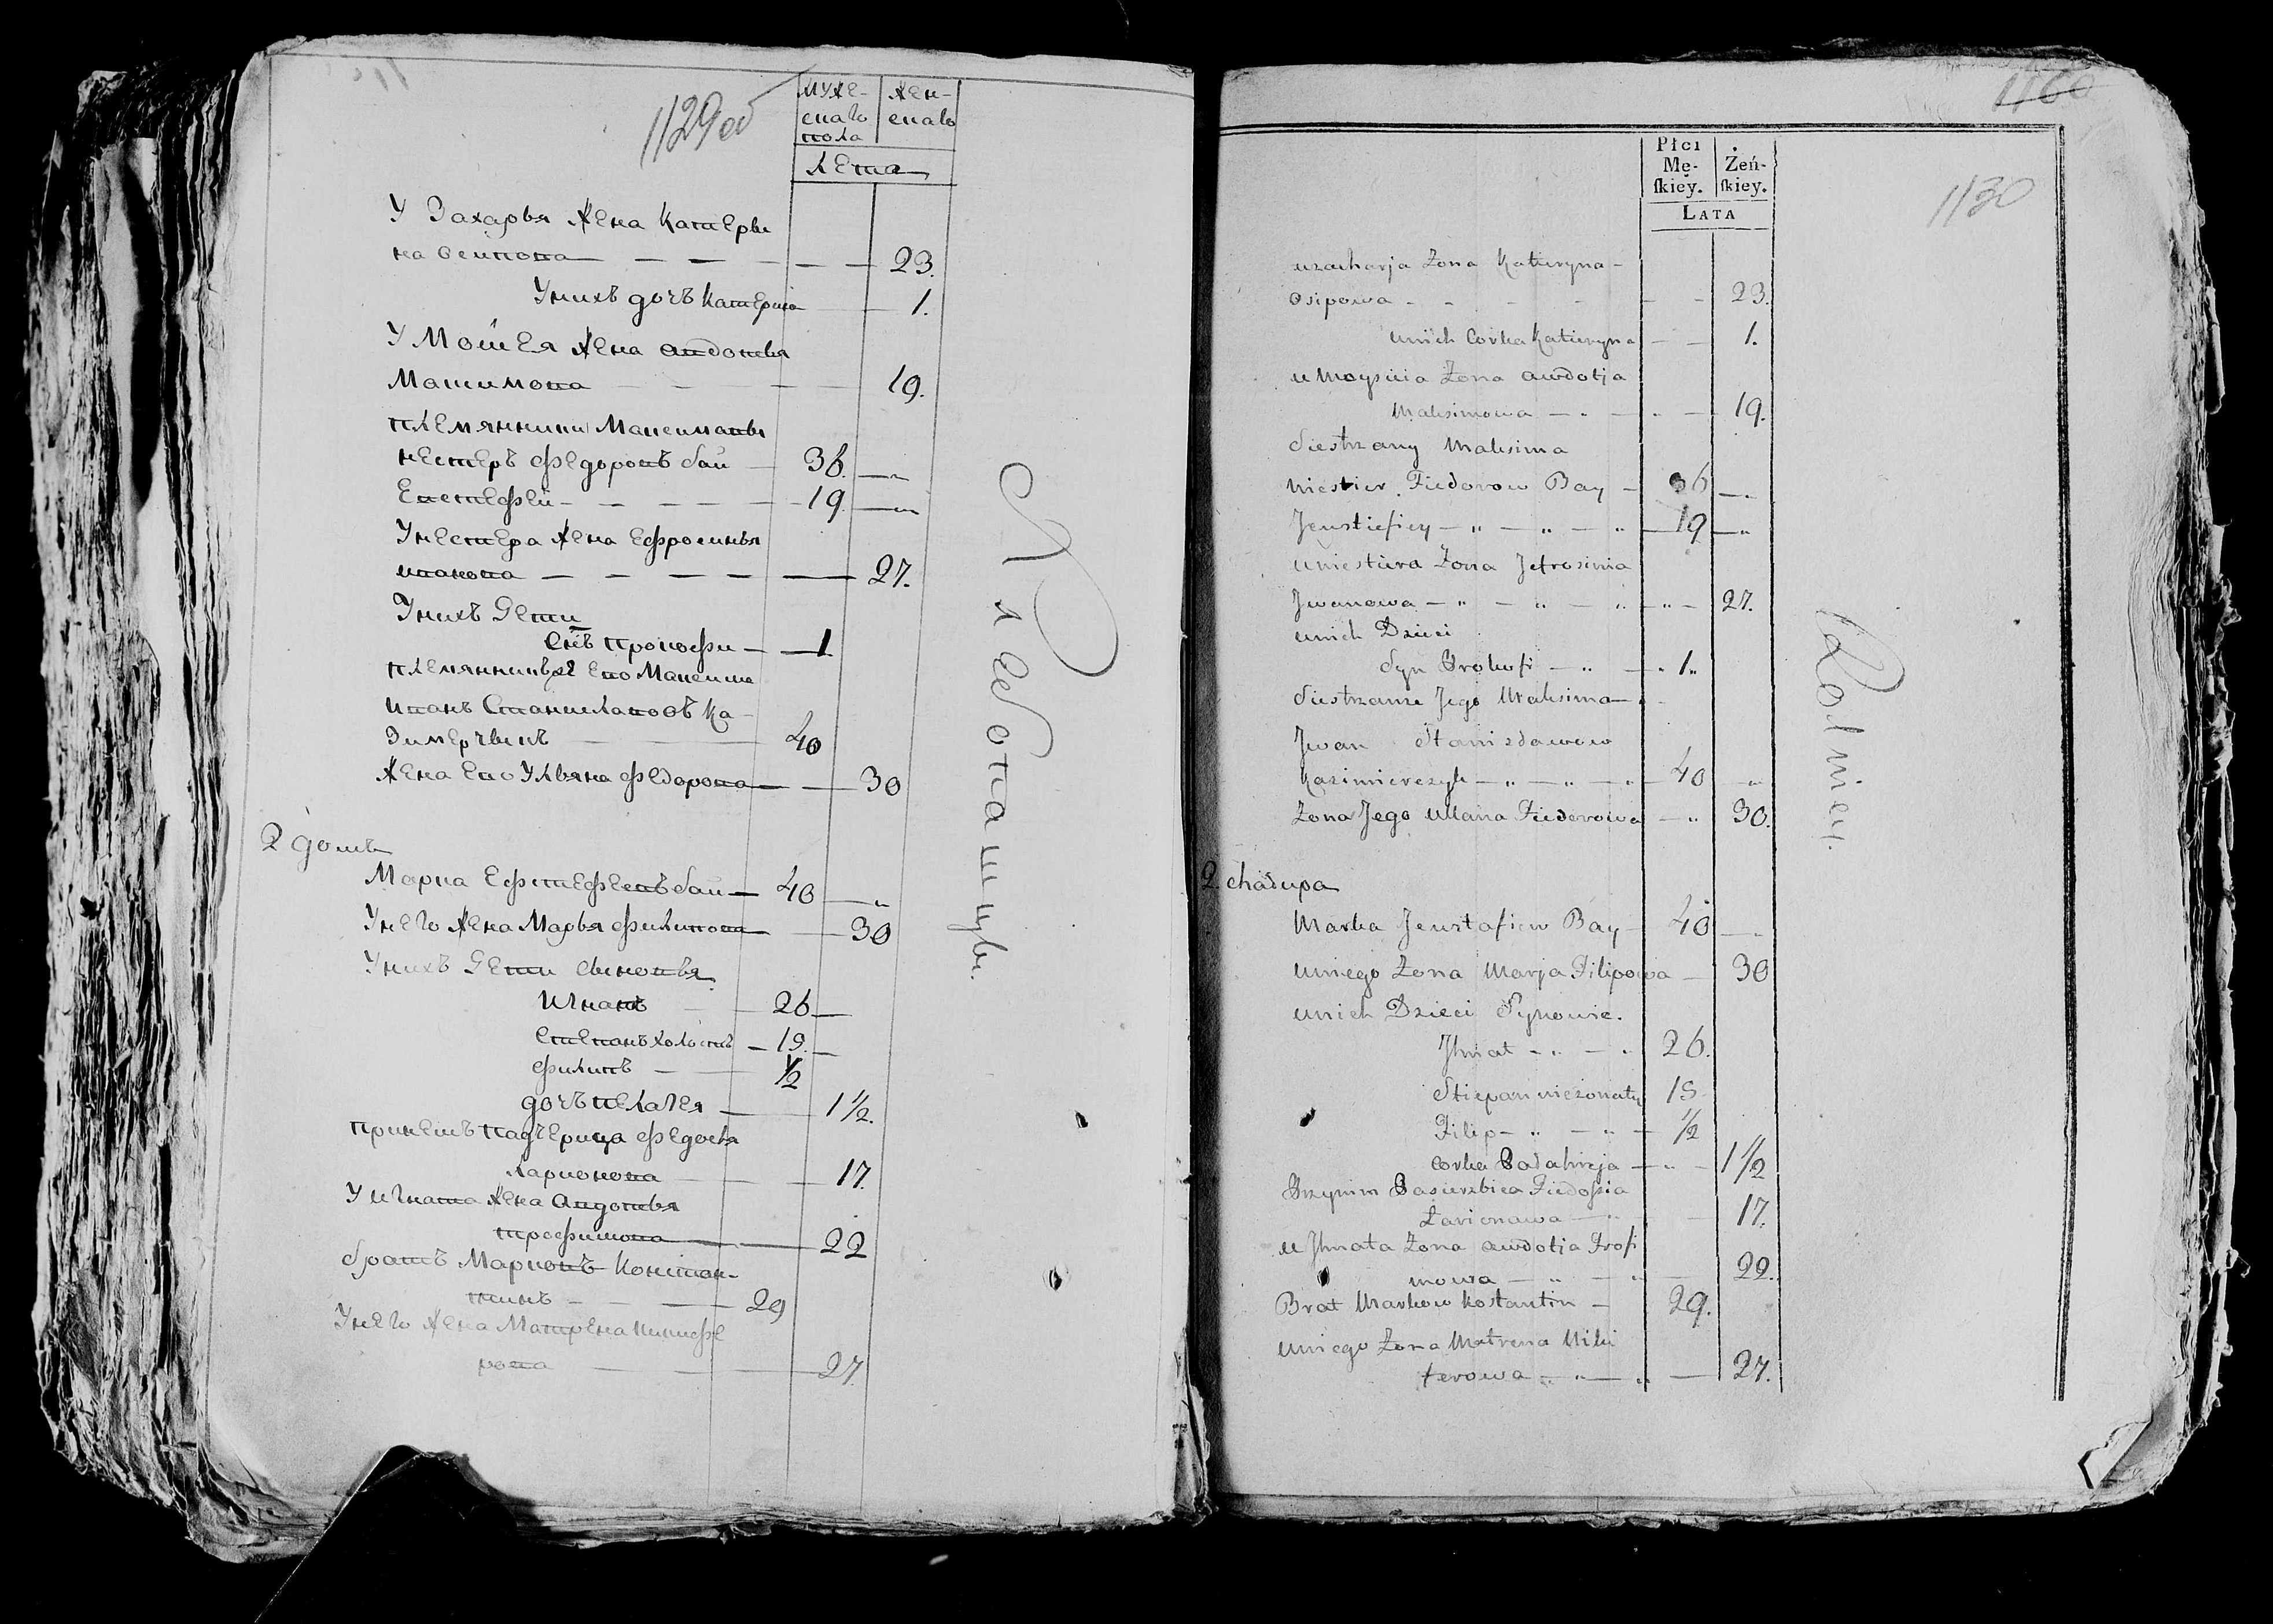 1129об
муже-
скаго
пола
жен-
скаго
лета
У Захарья жена Катеры
на Осипова 23.
У них дочъ Катерина 1.
У Мойсея жена Авдотья
Максимова 19.
племянники Максимовы
Нестеръ Федоровъ Бай 36.
Евстефей 19.
У Нестера жена Ефросинья
Иванова 27.
У нихъ дети
Снъ Прокофи 1
племянникъ его Максима
Иванъ Станиславовъ Ка-
зимерчыкъ 40
жена его Ульяна Федорова 30
2 домъ
Марка Ефстефеевъ Бай 40
У него жена Марья Филипова 30
У нихъ дети сыновья
Игнатъ 26
Степанъ холостъ 19.
Филипъ 1/2
дочъ Пелагея 1 1/2.
при нем падчерица Федосья
Ларионова 17.
У Игната жена Авдотья
Трофимова 22
братъ Марковъ Констан-
тинъ 29
У него жена Матрена Никифе
рова 27
Хлебопашцы.
1160
1130
Płci
Mę-
skiey.
Żeń-
skiey.
LATA
u zacharja Żona Kateryna -
Osipowa 23.
unich Corka Kateryna 1.
u Moysieia Żona awdotja
Maksimowa 19.
Siestrzany Maksima
Niestier Fiedorow Bay 36
Jewstiefiey 19
u niestiera Żona Jefrosinia
Jwanowa 27.
unich Dzieci
Syn Prokofi 1
Siestrzanie Jego Maksima
Jwan Stanisławow
Kazimierczyk 40
Żona Jego Uliana Fiedorowa 30.
2. chałupa
Marka Jewstafiew Bay 40
uniego Żona Marja Filipowa 30
unich Dzieci Synowie.
Jhnat 26.
Stiepan nieżonaty 19
Filip 1/2
corka Pałahieja 1 1/2
Przynim Pasierzbica Fiedosia
Łarionawa 17.
u Jhnata Żona awdotja Trofi
mowa 22.
Brat Markow Kostantin 29.
uniego Żona Matrena Niki
ferowa 27.
Rolnicy.